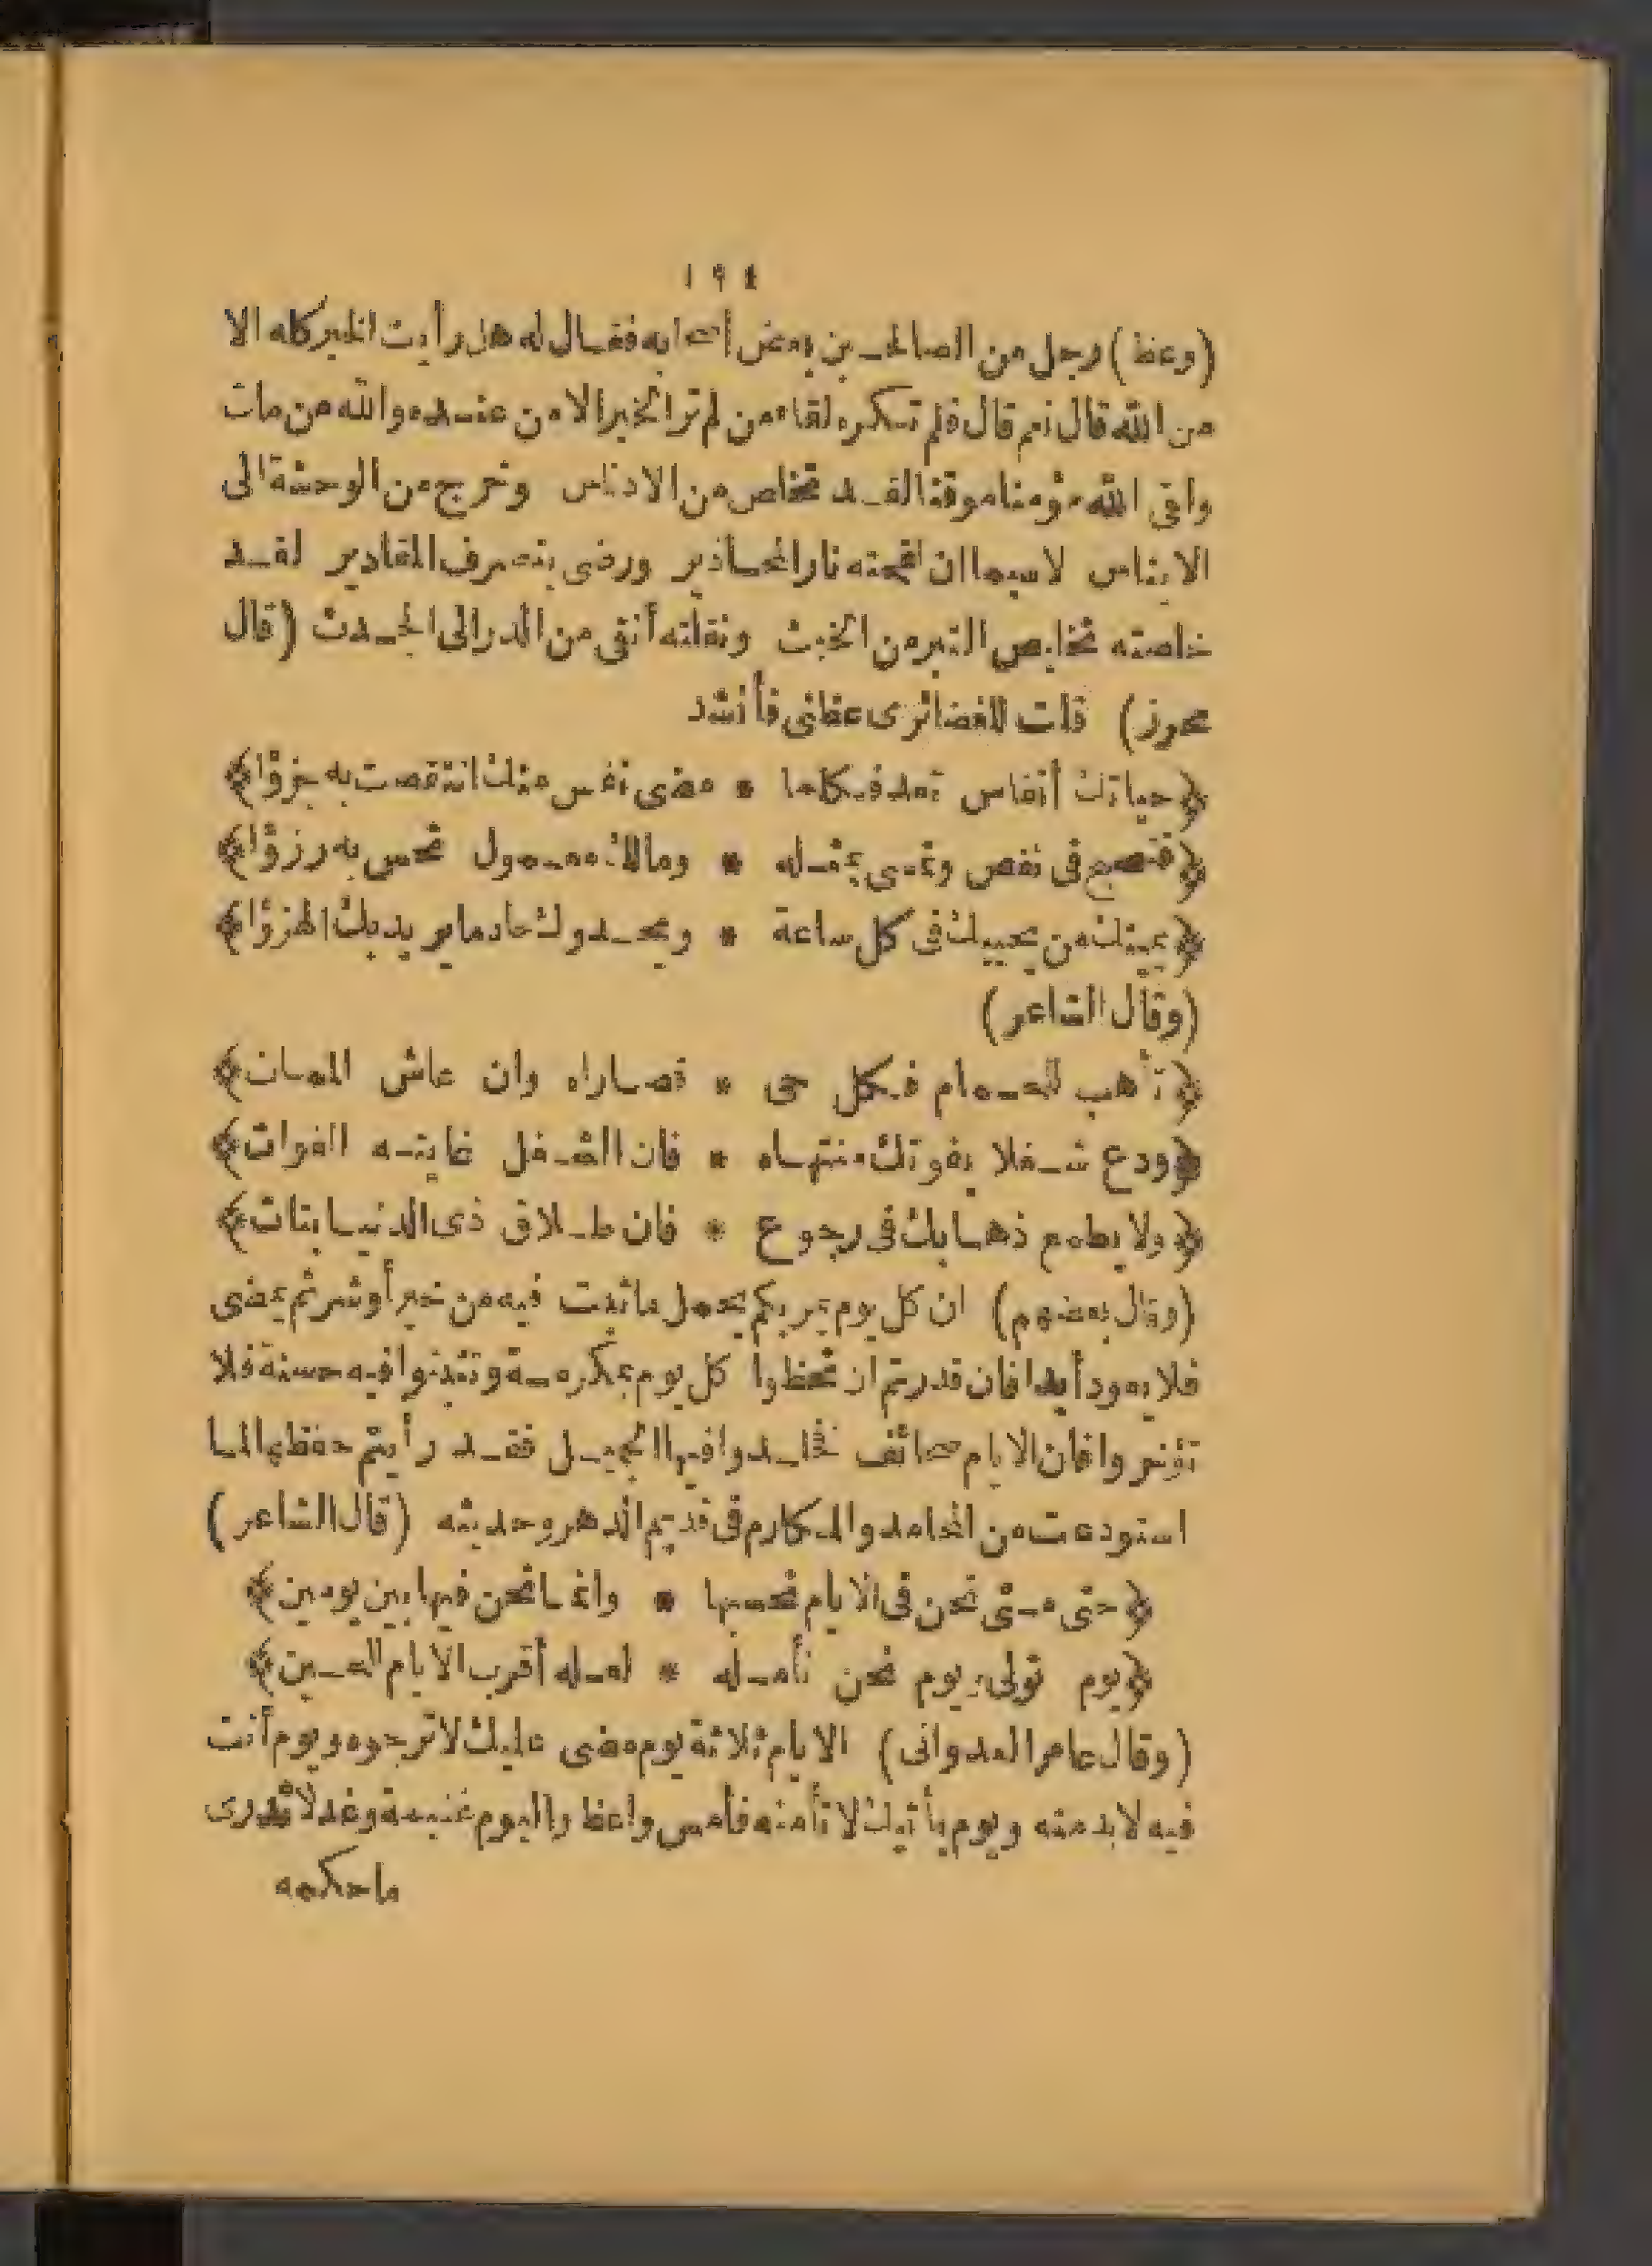 ١٩٤
(وعظ) رجل من الصالحين بعض أصحابه فقال له هل رأيت الخير كله الا
من الله قال نعم قال فلم تكره لقاء من لم تر الخير الا من عنده والله من مات
وافى الله مؤمنا موقنا لقد تخلص من الادناس وخرج من الوحشة الى
الايناس لاسيما ان لفحته نار المحاذير ورضى بتصرف المقادير لقد
خلصته تخليص التبر من الخبث ونقلته أنقى من الدر الى الجدث (قال
محرز) قلت للغضائرى عظنى فأنشد
﴿حياتك أنفاس تعد فكلما * مضى نفس منك انتقصت به جزؤا﴾
﴿فتصبح فى نقص وتمسى بمثله * ومالك معمول تحس به رزؤا﴾
﴿يميتك من يحييك فى كل ساعة * ويحدوك حاد ما يريد بك الهزؤا﴾
(وقال الشاعر)
﴿تأهب للحمام فكل حى * قصاراه وان عاش الممات﴾
﴿ودع شغلا يفوتك منتهاه * فان الشغل غايته الفوات﴾
﴿ولا يطمع ذهابك فى رجوع * فان طلاق ذى الدنيا بتات﴾
(وقال بعضهم) ان كل يوم يمر بكم يحمل ما ثبت فيه من خير أو شر ثم يمضى
فلا يعود أبدا فان قدرتم ان تحظوا كل يوم بمكرمة وتثبتوا فيه حسنة فلا
تؤخروا فان الايام صحائف فخلدوا فيها الجميل فقد رأيتم حفظها لما
استودعت من المحامد والمكارم فى قديم الدهر وحديثه (قال الشاعر)
﴿حتى متى نحن فى الايام نحسبها * وانما نحن فيها بين يومين﴾
﴿يوم تولى ويوم نحن نأمله * لعله أقرب الايام للحين﴾
(وقال عامر العدوانى) الايام ثلاثة يوم مضى عليك لا ترجوه ويوم أنت
فيه لا بد منه ويوم يأتيك لا تأمنه فأمس واعظ واليوم غنيمة وغد لا تدرى
ما حكمه